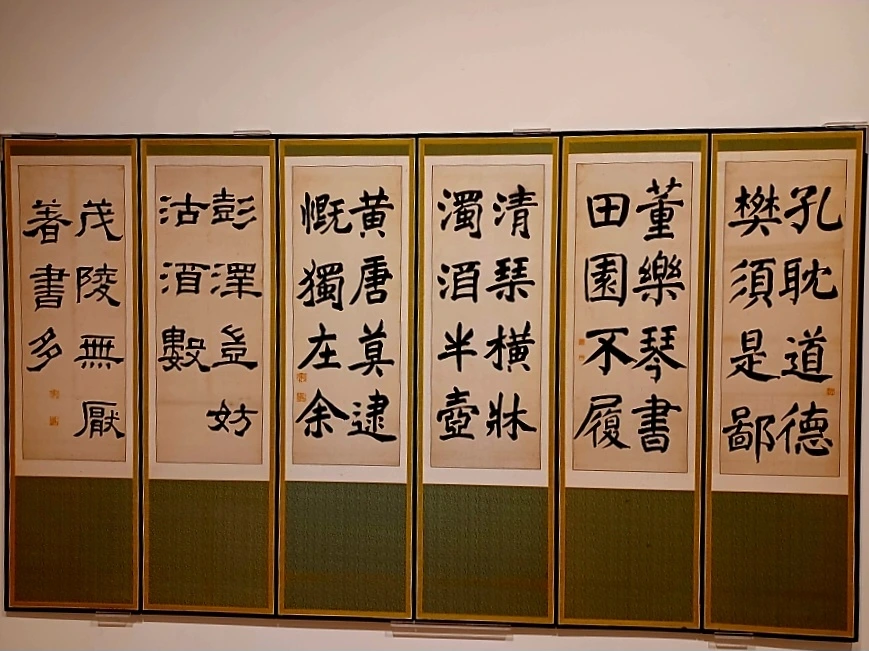 孔耽道德
樊須是鄙
董樂琴書
田園不履
清琹橫牀
濁酒半壺
黄唐莫逮
慨獨在余
彭澤豈妨
沽酒數
茂陵無厭
著書多